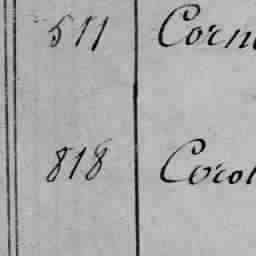 511 Corn
818 Corol